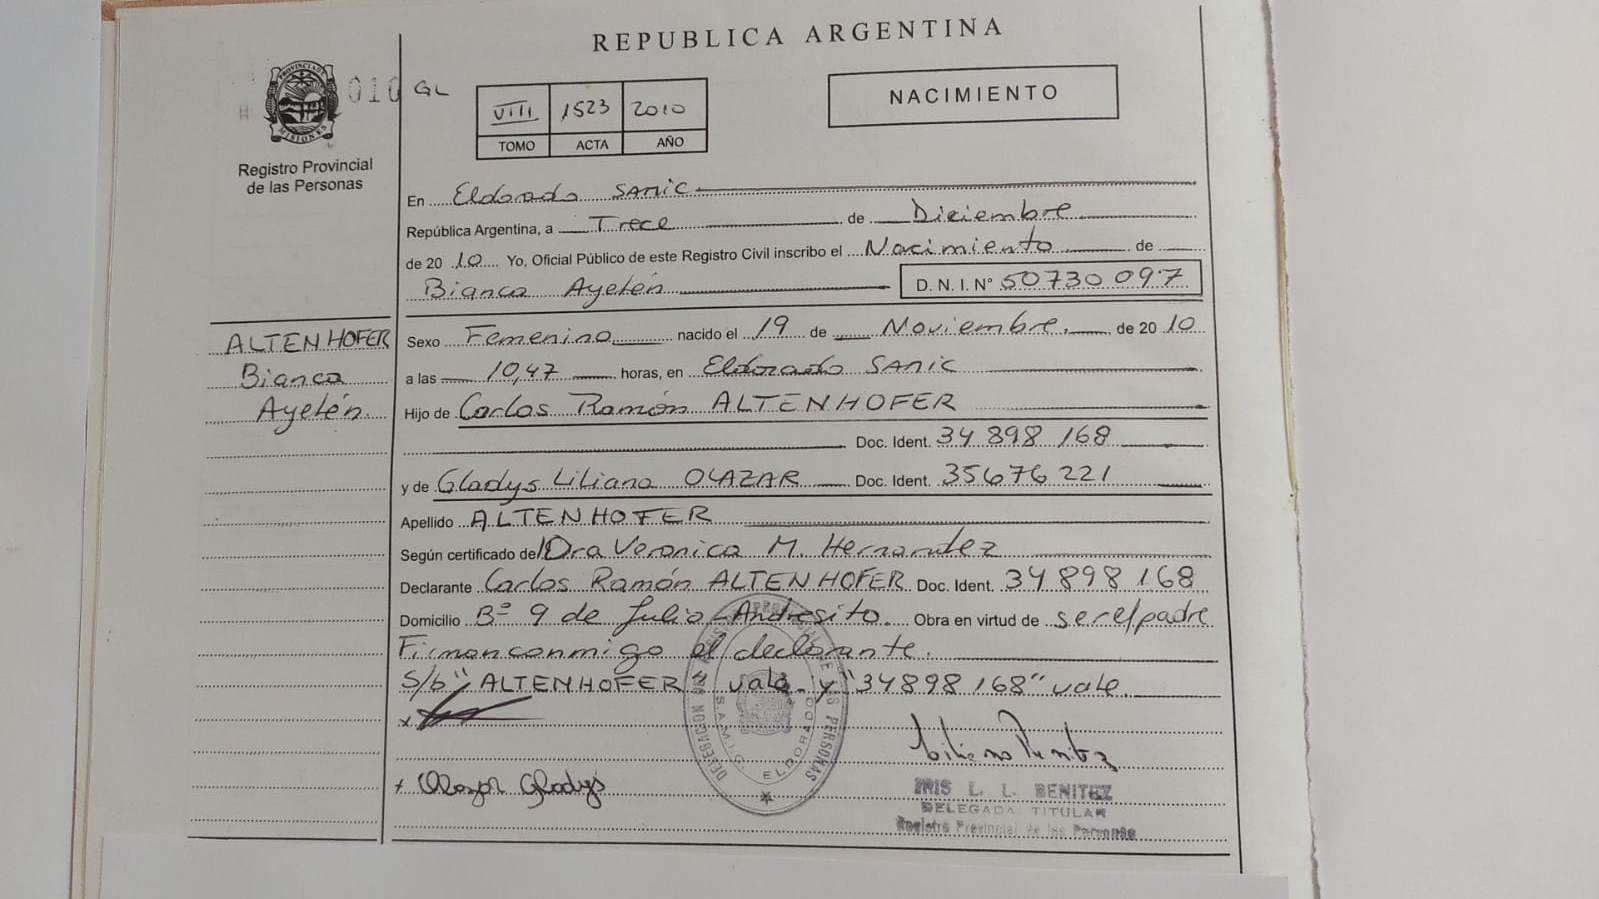 REPUBLICA ARGENTINA
PROVINCIA DE MISIONES
010 GL
VIII 1523 2010
TOMO ACTA AÑO
NACIMIENTO
Registro Provincial
de las Personas
En Eldorado SAMIC
República Argentina, a Trece de Diciembre
de 2010 Yo, Oficial Público de este Registro Civil inscribo el Nacimiento de
Bianca Ayelén D.N.I. N° 50730097
ALTENHOFER
Bianca
Ayelén
Sexo Femenino nacido el 19 de Noviembre de 2010
a las 10,47 horas, en Eldorado SAMIC
Hijo de Carlos Ramón ALTENHOFER
Doc. Ident. 34 898 168
y de Gladys Liliana OLAZAR Doc. Ident. 35676 221
Apellido ALTENHOFER
Según certificado de Dra Veronica M. Hernandez
Declarante Carlos Ramón ALTENHOFER Doc. Ident. 34 898 168
Domicilio B° 9 de Julio - Andresito. Obra en virtud de ser el padre
Firman conmigo el declarante.
S/b "ALTENHOFER" vale y "34898168" vale
x
+ Olazar Gladys
DELEGACION REGISTRO PROVINCIAL DE LAS PERSONAS
S.A.M.I.C. ELDORADO
IRIS L. L. BENITEZ
DELEGADA TITULAR
Registro Provincial de las Personas